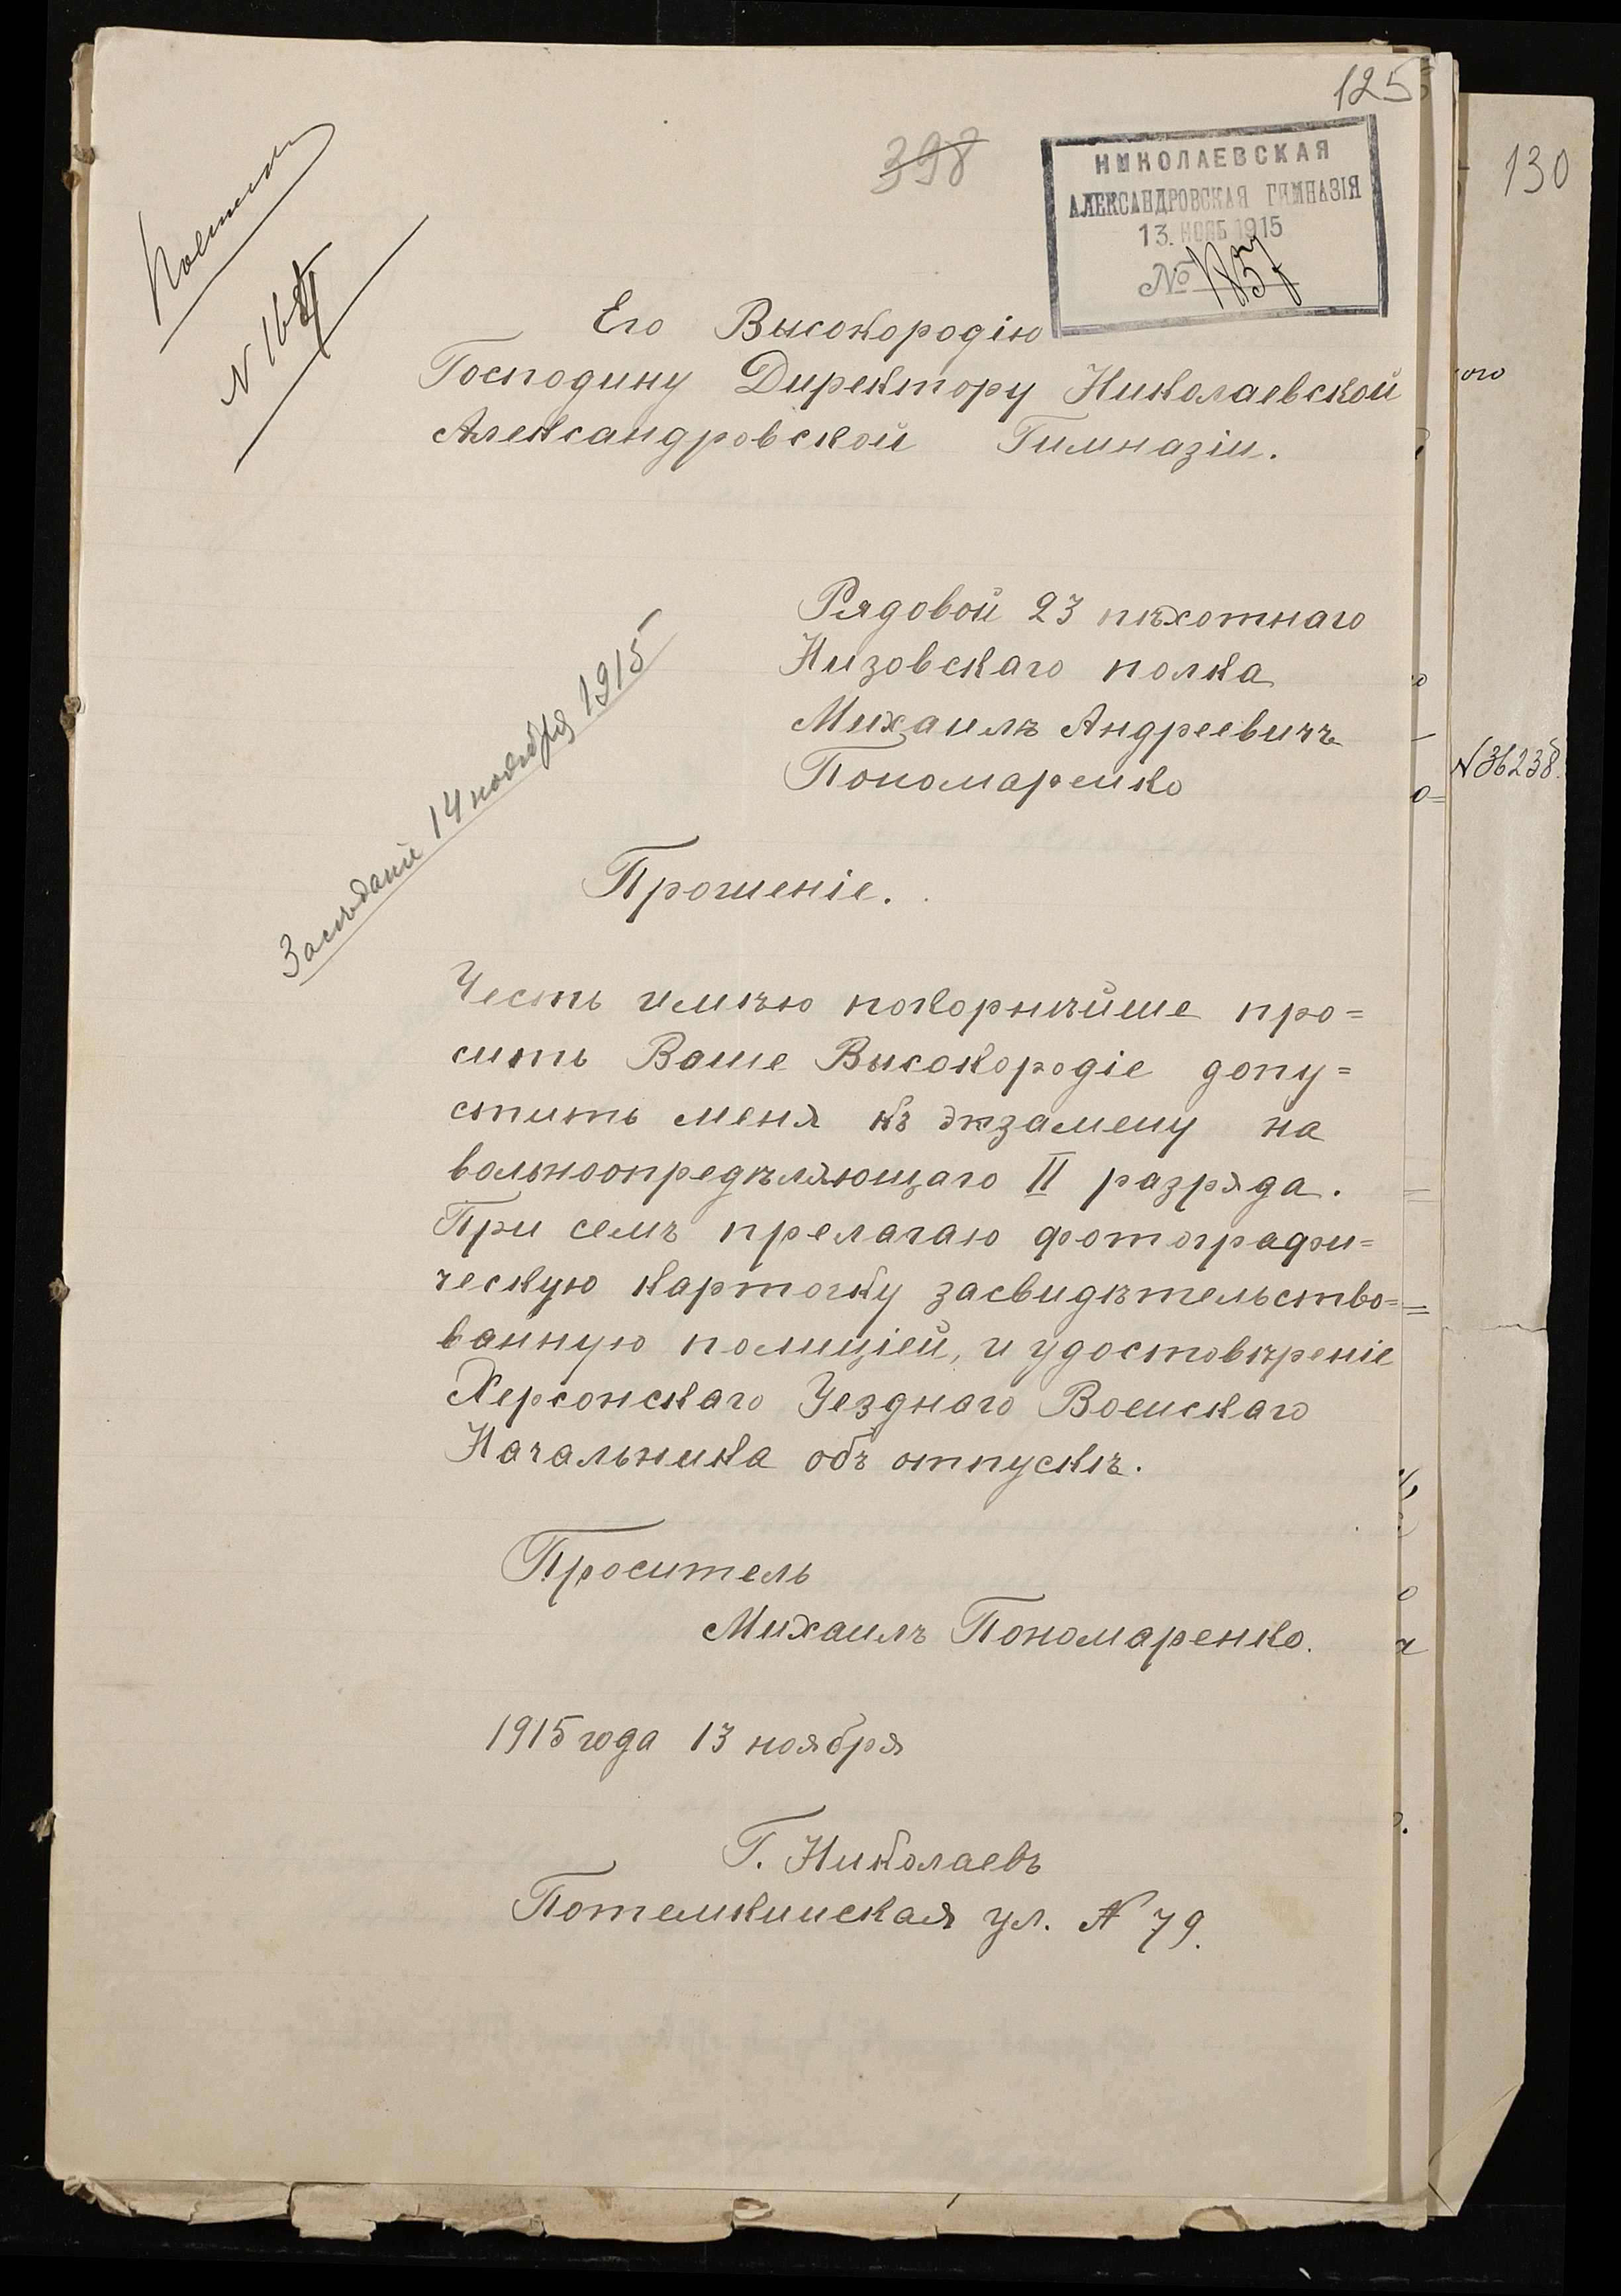 125
398
НИКОЛАЕВСКАЯ
АЛЕКСАНДРОВСКАЯ ГИМНАЗІЯ
13. НОЯБ 1915
№ 1857
130
Его Высокородію
Господину Директору Николаевской
Александровской Гимназіи.
ого
Рядовой 23 пѣхотнаго
Низовскаго полка
Михаилъ Андреевичъ
Пономаренко
N36238.
Засѣданіе 14 ноября 1915
Прошеніе.
Честь имѣю покорнѣйше про=
сить Ваше Высокородіе допу=
стить меня къ экзамену на
вольноопредѣляющаго II разряда.
При семъ прелагаю фотографи=
ческую карточку засвидѣтельство=
ванную полиціей, и удостовѣреніе
Херсонскаго Уезднаго Воинскаго
Начальника объ отпускѣ.
Проситель
Михаилъ Пономаренко.
1915 года 13 ноября
Г. Николаевъ
Потемкинская ул. N 79.